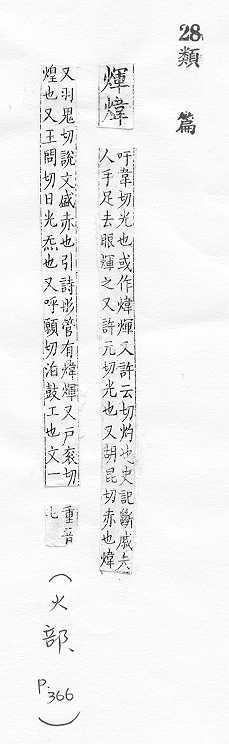 28 類篇
煇煒
吁韋切光也或作煒煇又許云切灼也史記斷戚夫
人手足去眼煇之又許元切光也又胡昆切赤也煒
又羽鬼切說文盛赤也引詩彤管有煒煇又戶袞切
煌也又王問切日光炁也又呼願切泊鼓工也文一
重音
七
(火部、P.366)